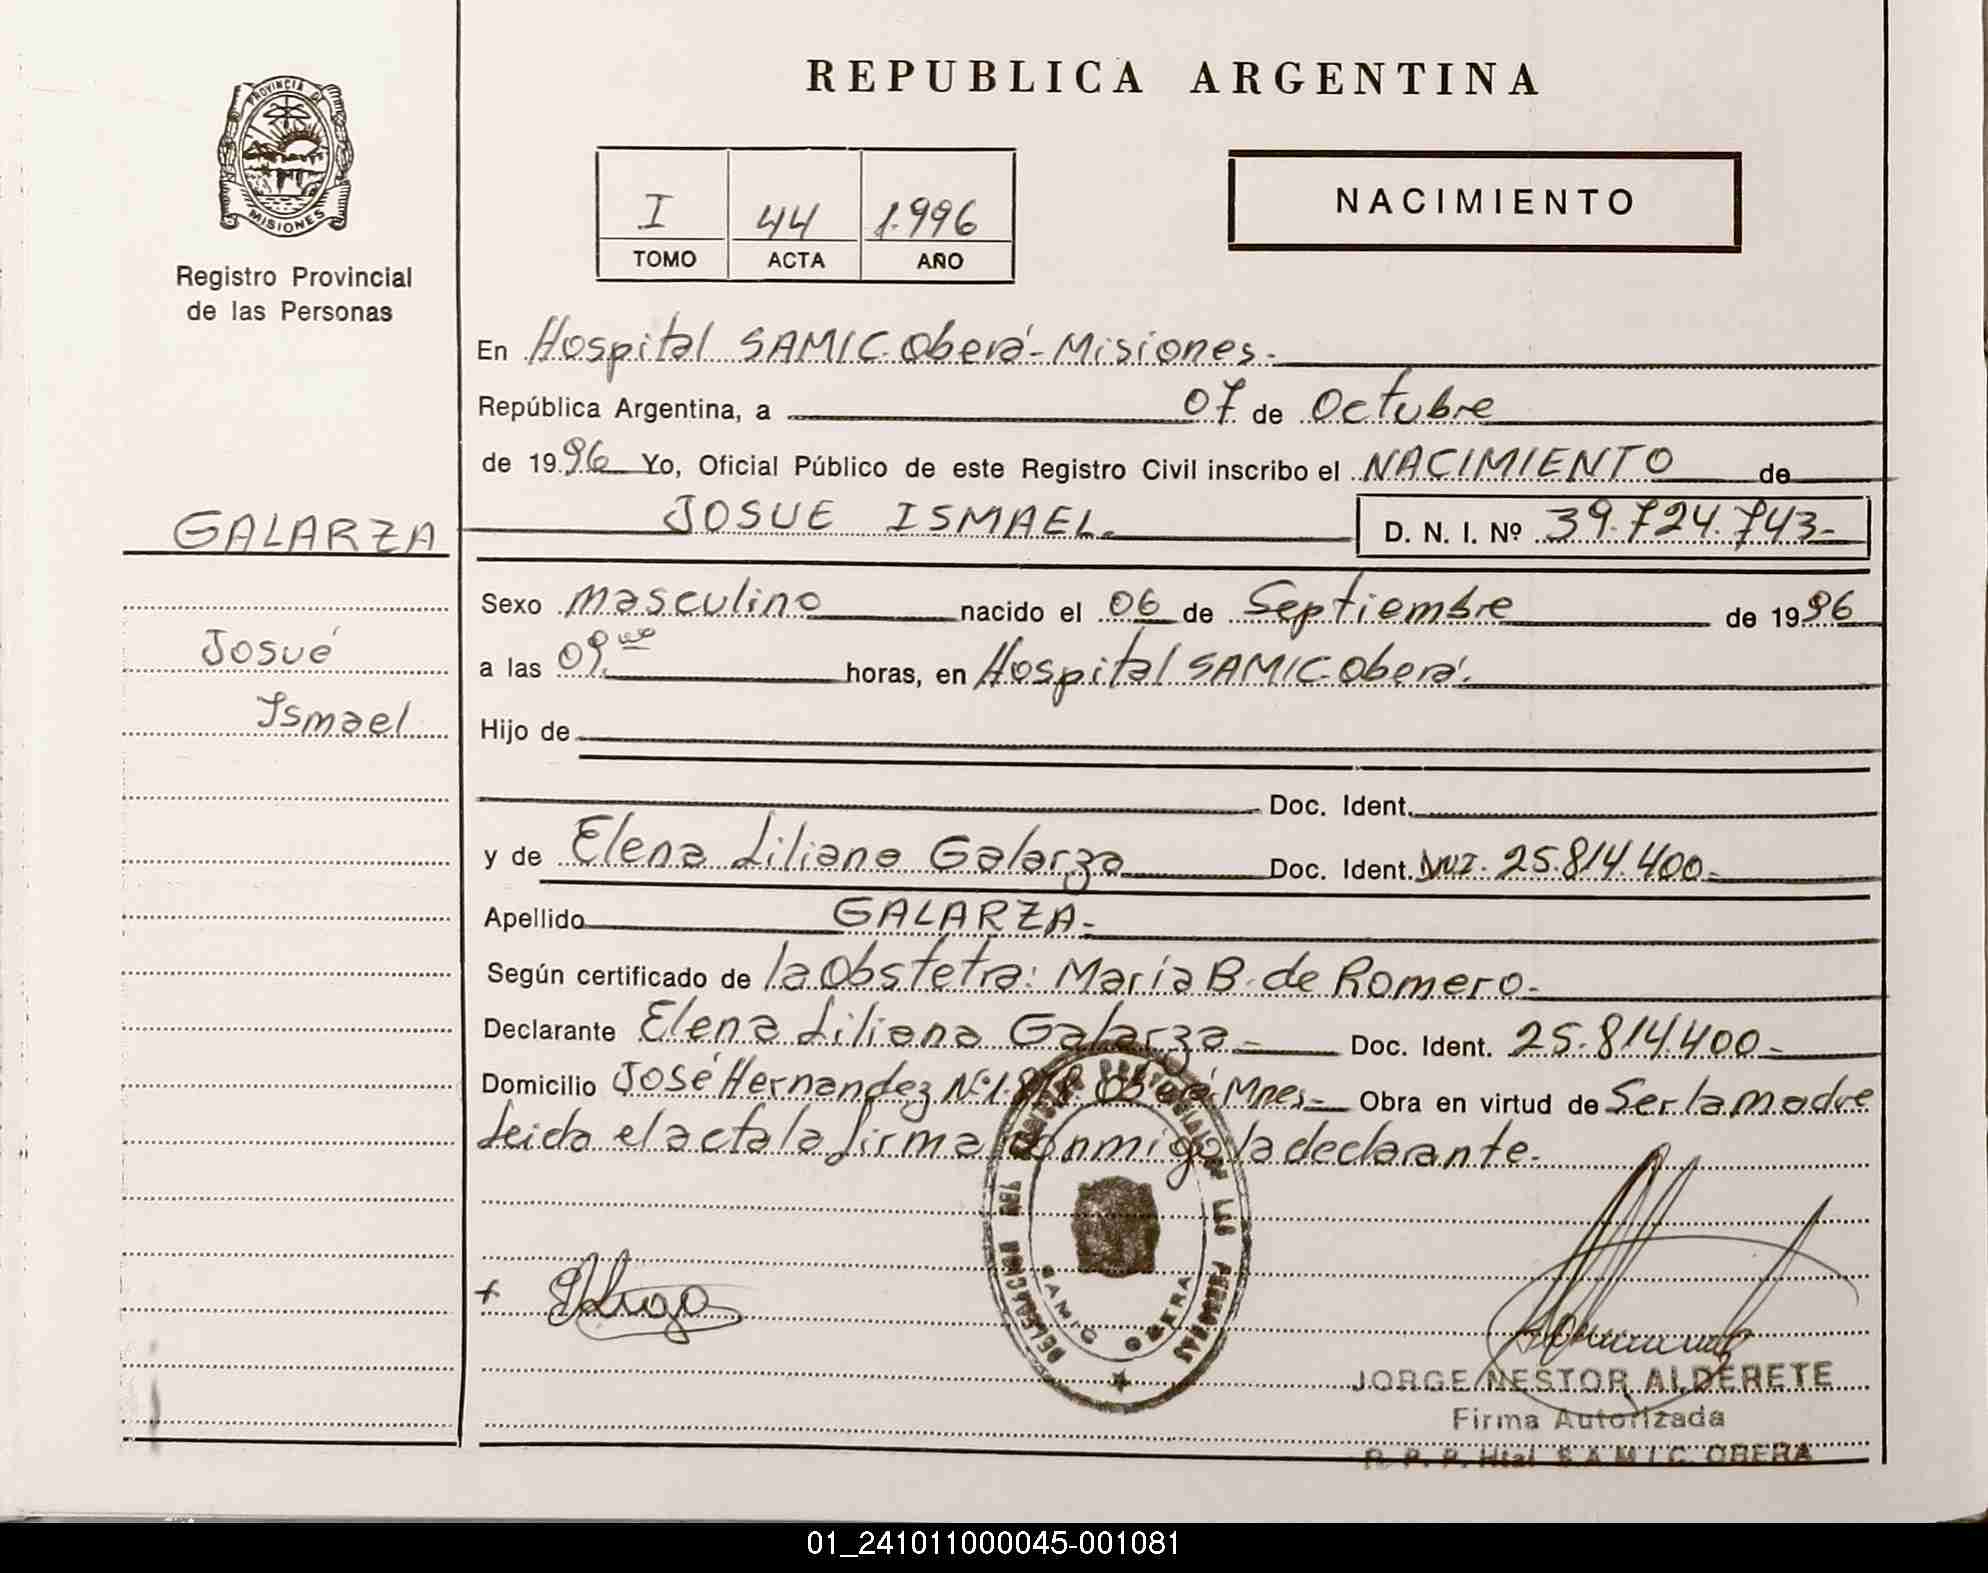 REPUBLICA ARGENTINA
PROVINCIA DE
MISIONES
Registro Provincial
de las Personas
I 44 1.996
TOMO ACTA AÑO
NACIMIENTO
En Hospital SAMIC-Oberá-Misiones.-
República Argentina, a 07 de Octubre
de 1996 Yo, Oficial Público de este Registro Civil inscribo el NACIMIENTO de
GALARZA
JOSUE ISMAEL.- D. N. I. Nº 39.724.743-
Josué
Ismael
Sexo Masculino nacido el 06 de Septiembre de 1996
a las 09.00 horas, en Hospital SAMIC-Oberá.
Hijo de
Doc. Ident.
y de Elena Liliana Galarza Doc. Ident. DNI. 25.814.400-
Apellido GALARZA-
Según certificado de la Obstetra: María B. de Romero-
Declarante Elena Liliana Galarza- Doc. Ident. 25.814.400-
Domicilio José Hernandez Nº 1.818 Oberá Mnes- Obra en virtud de Ser la madre
Leida el acta la firma conmigo la declarante.-
DELEGACION DEL REGISTRO PROVINCIAL DE LAS PERSONAS
SAMIC OBERA
JORGE NESTOR ALDERETE
Firma Autorizada
R. P. P. Htal S.A.M.I.C. OBERA
01_241011000045-001081